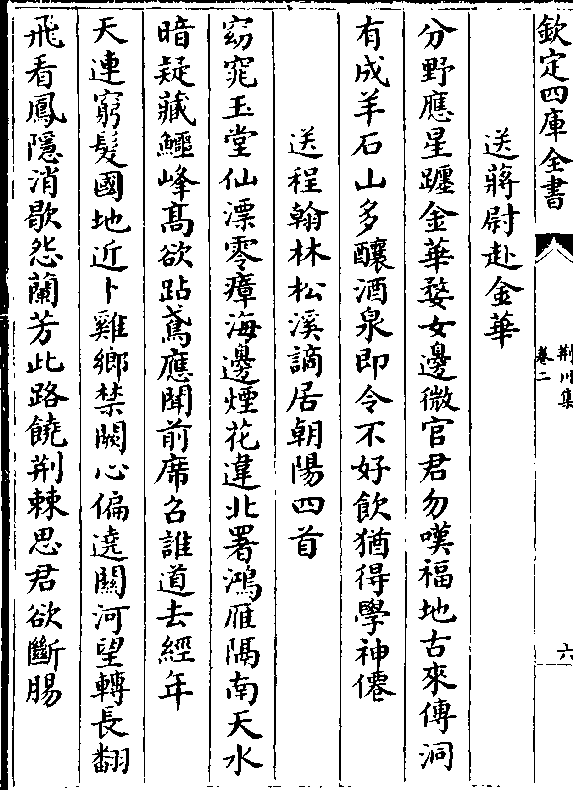 欽定四庫全書
荆川集
卷二
六
送蔣尉赴金華
分野應星躔金華婺女邊微官君勿嘆福地古來傳洞
有成羊石山多釀酒泉即令不好飲猶得學神僊
送程翰林松溪謫居朝陽四首
窈窕玉堂仙漂零瘴海邊煙花違北署鴻雁隔南天水
暗疑藏鱷峰髙欲跕鳶應聞前席召誰道去經年
天連窮髮國地近卜雞鄉禁闕心偏遶關河望轉長翻
飛看鳳隱消歇怨蘭芳此路饒荆棘思君欲斷腸